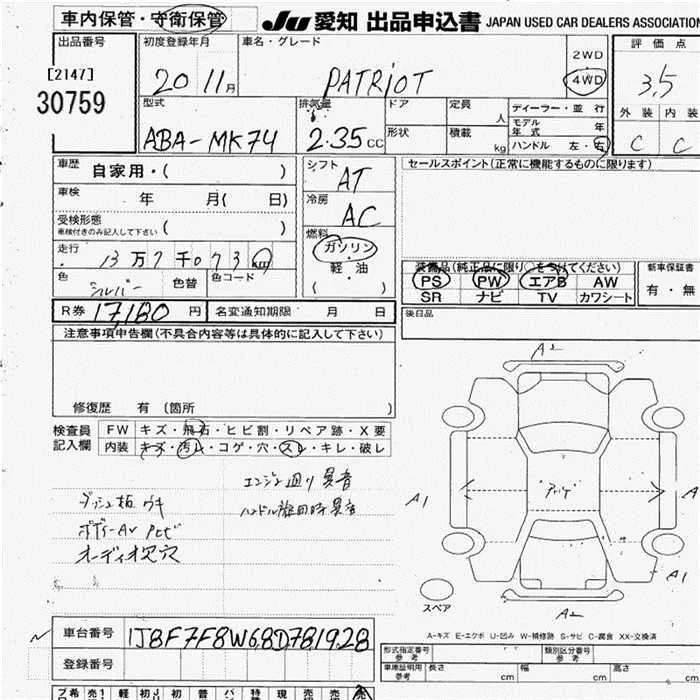 車内保管・守衛保管
JU 愛知 出品申込書 JAPAN USED CAR DEALERS ASSOCIATION
出品番号
[2147]
30759
初度登録年月
20 11月
車名・グレード
PATRIOT
2WD
4WD
評価点
3.5
外装 内装
C C
型式
ABA-MK74
排気量
2.35cc
ドア
形状
定員
人
積載
kg
ディーラー・並行
モデル年式 年
ハンドル 左・右
車歴 自家用・( )
車検 年 月( 日)
受検形態
車検付きのみ記入して下さい ( )
走行
13万7千073km
色 シルバー 色替 色コード
シフト
AT
冷房
AC
燃料
ガソリン
軽・油
( )
セールスポイント(正常に機能するものに限ります)
装備品(純正品に限り○をつけてください)
PS PW エアB AW
SR ナビ TV カワシート
新車保証書
有・無
R券 17180円 名変通知期限 月 日
後日品
注意事項申告欄(不具合内容等は具体的に記入して下さい)
修復歴 有 〔箇所 〕
検査員記入欄
FW キズ・飛石・ヒビ割・リペア跡・X要
内装 キズ・汚れ・コゲ・穴・スレ・キレ・破レ
エンジン廻り異音
ダッシュ板ウキ
ハンドル施回時異音
オーディオ穴
A2
A1
A1
A1
A2
スペア
A-キズ E-エクボ U-凹み W-補修跡 S-サビ C-腐食 XX-交換済
車台番号 1J8F7F8W68D781928
登録番号
形式指定番号 参考
類別区分番号 参考
車庫証明用 参考 長さ cm 幅 cm 高さ cm